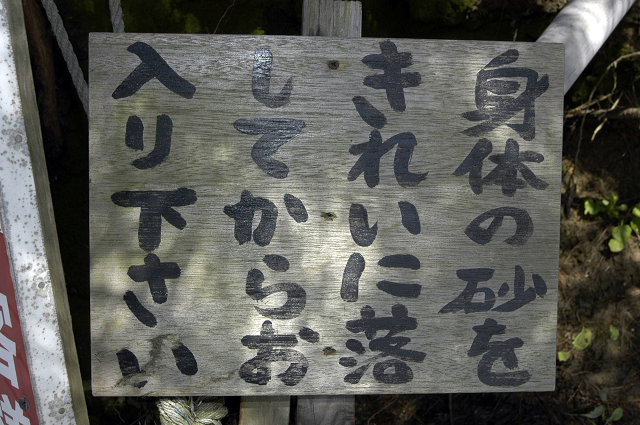 身体の砂を
きれいに落
してからお
入り下さい